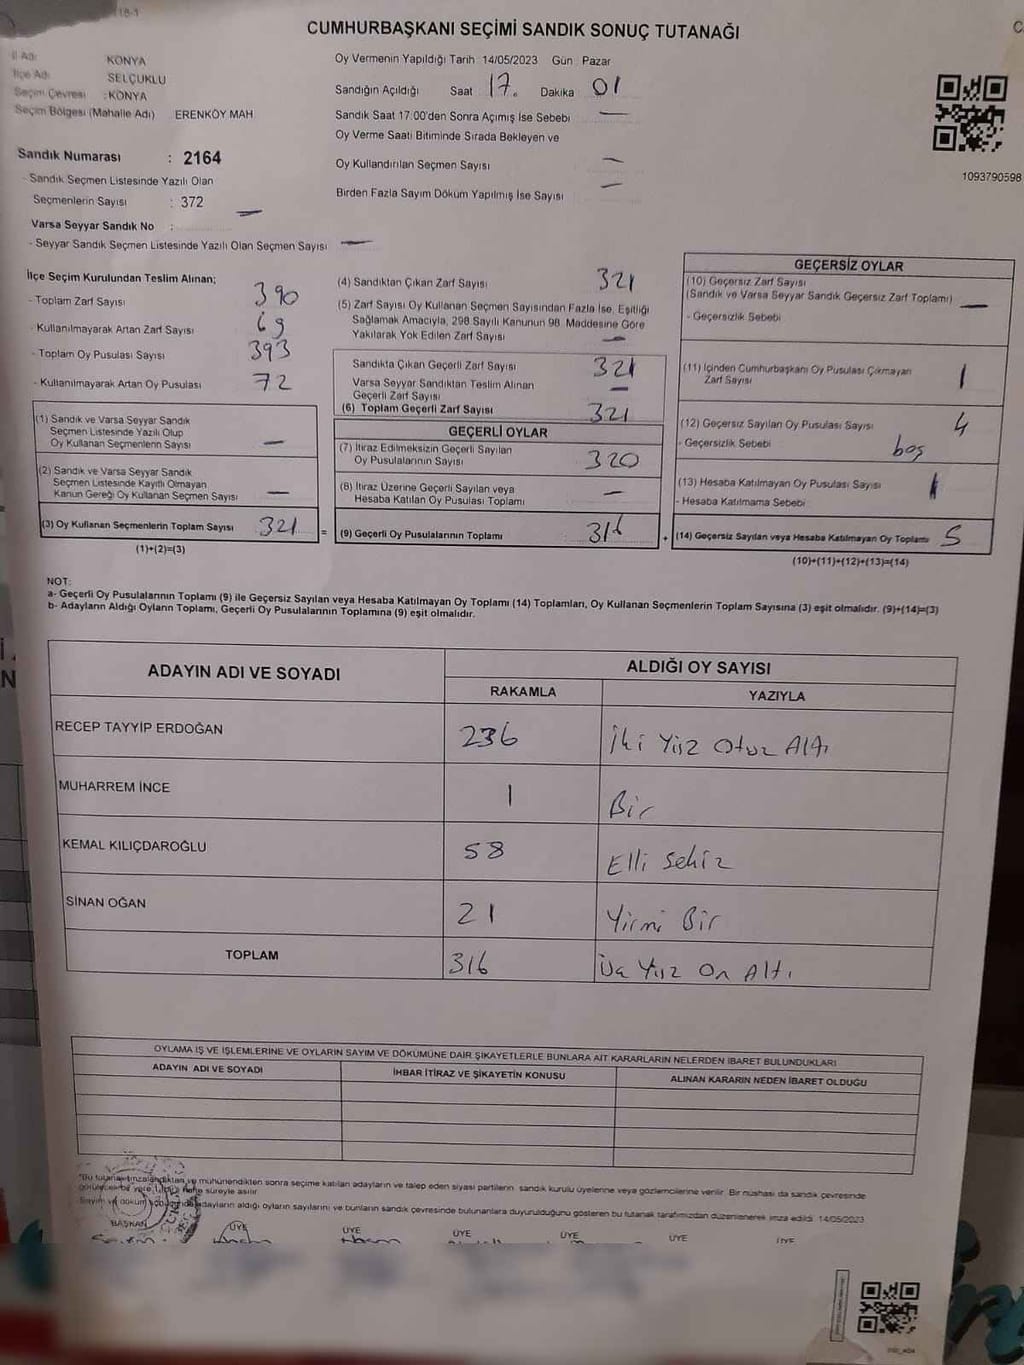 18-1
CUMHURBAŞKANI SEÇİMİ SANDIK SONUÇ TUTANAĞI
İl Adı KONYA
İlçe Adı SELÇUKLU
Seçim Çevresi : KONYA
Seçim Bölgesi (Mahalle Adı) ERENKÖY MAH
Oy Vermenin Yapıldığı Tarih 14/05/2023 Gün Pazar
Sandığın Açıldığı Saat 17. Dakika 01
Sandık Saat 17:00'den Sonra Açımış İse Sebebi —
Oy Verme Saati Bitiminde Sırada Bekleyen ve
Oy Kullandırılan Seçmen Sayısı —
Birden Fazla Sayım Döküm Yapılmış İse Sayısı —
1093790598
Sandık Numarası : 2164
- Sandık Seçmen Listesinde Yazılı Olan
Seçmenlerin Sayısı : 372
Varsa Seyyar Sandık No : —
- Seyyar Sandık Seçmen Listesinde Yazılı Olan Seçmen Sayısı —
İlçe Seçim Kurulundan Teslim Alınan;
- Toplam Zarf Sayısı 390
- Kullanılmayarak Artan Zarf Sayısı 69
- Toplam Oy Pusulası Sayısı 393
- Kullanılmayarak Artan Oy Pusulası 72
(1) Sandık ve Varsa Seyyar Sandık
Seçmen Listesinde Yazılı Olup
Oy Kullanan Seçmenlerin Sayısı —
(2) Sandık ve Varsa Seyyar Sandık
Seçmen Listesinde Kayıtlı Olmayan
Kanun Gereği Oy Kullanan Seçmen Sayısı —
(3) Oy Kullanan Seçmenlerin Toplam Sayısı 321
(1)+(2)=(3)
(4) Sandıktan Çıkan Zarf Sayısı 321
(5) Zarf Sayısı Oy Kullanan Seçmen Sayısından Fazla İse, Eşitliği
Sağlamak Amacıyla, 298 Sayılı Kanunun 98. Maddesine Göre
Yakılarak Yok Edilen Zarf Sayısı —
Sandıkta Çıkan Geçerli Zarf Sayısı 321
Varsa Seyyar Sandıktan Teslim Alınan
Geçerli Zarf Sayısı —
(6) Toplam Geçerli Zarf Sayısı 321
GEÇERLİ OYLAR
(7) İtiraz Edilmeksizin Geçerli Sayılan
Oy Pusulalarının Sayısı 320
(8) İtiraz Üzerine Geçerli Sayılan veya
Hesaba Katılan Oy Pusulası Toplamı —
= (9) Geçerli Oy Pusulalarının Toplamı 316
GEÇERSİZ OYLAR
(10) Geçersiz Zarf Sayısı
(Sandık ve Varsa Seyyar Sandık Geçersiz Zarf Toplamı) —
- Geçersizlik Sebebi
(11) İçinden Cumhurbaşkanı Oy Pusulası Çıkmayan
Zarf Sayısı 1
(12) Geçersiz Sayılan Oy Pusulası Sayısı 4
- Geçersizlik Sebebi boş
(13) Hesaba Katılmayan Oy Pusulası Sayısı
- Hesaba Katılmama Sebebi
+ (14) Geçersiz Sayılan veya Hesaba Katılmayan Oy Toplamı 5
(10)+(11)+(12)+(13)=(14)
NOT:
a- Geçerli Oy Pusulalarının Toplamı (9) ile Geçersiz Sayılan veya Hesaba Katılmayan Oy Toplamı (14) Toplamları, Oy Kullanan Seçmenlerin Toplam Sayısına (3) eşit olmalıdır. (9)+(14)=(3)
b- Adayların Aldığı Oyların Toplamı, Geçerli Oy Pusulalarının Toplamına (9) eşit olmalıdır.
ADAYIN ADI VE SOYADI ALDIĞI OY SAYISI
RAKAMLA YAZIYLA
RECEP TAYYİP ERDOĞAN 236 İki Yüz Otuz Altı
MUHARREM İNCE 1 Bir
KEMAL KILIÇDAROĞLU 58 Elli Sekiz
SİNAN OĞAN 21 Yirmi Bir
TOPLAM 316 Üç Yüz On Altı
OYLAMA İŞ VE İŞLEMLERİNE VE OYLARIN SAYIM VE DÖKÜMÜNE DAİR ŞİKAYETLERLE BUNLARA AİT KARARLARIN NELERDEN İBARET BULUNDUKLARI
ADAYIN ADI VE SOYADI İHBAR İTİRAZ VE ŞİKAYETİN KONUSU ALINAN KARARIN NEDEN İBARET OLDUĞU
*Bu tutanak imzalandıktan ve mühürlendikten sonra seçime katılan adayların ve talep eden siyasi partilerin sandık kurulu üyelerine veya gözlemcilerine verilir. Bir nüshası da sandık çevresinde
süreyle asılır
Sayım ve döküm adayların aldığı oyların sayılarını ve bunların sandık çevresinde bulunanlara duyurulduğunu gösteren bu tutanak tarafımızdan düzenlenerek imza edildi. 14/05/2023
BAŞKAN ÜYE ÜYE ÜYE ÜYE ÜYE ÜYE